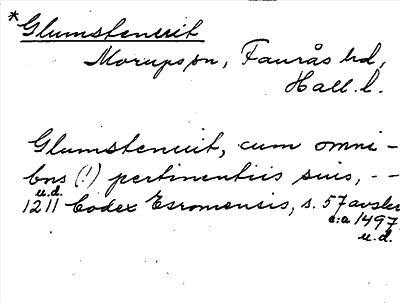 *Glumstenruit
Morups sn, Faurås hd,
Hall. l.
Glumstenruit, cum omni-
bus (!) pertinentiis suis, - -
u.d.
1211 Codex Esromensis, s. 57 avskr
c:a 1497
u.d.